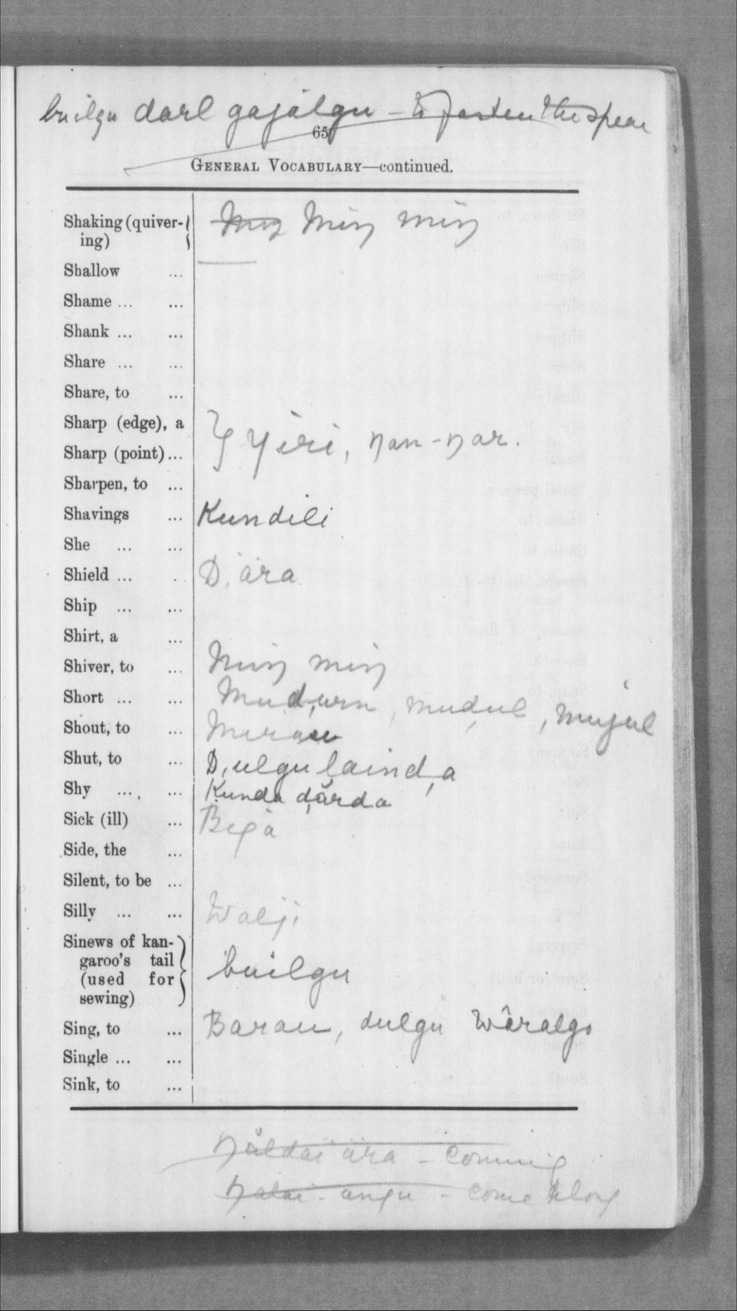 builgu darl gajalgu - to fasten the spear
65
GENERAL VOCABULARY—continued.
Shaking (quiver-ing) Ming ming
Shallow ...
Shame ... ...
Shank ... ...
Share ... ...
Share, to ...
Sharp (edge), a
Sharp (point) ... yiri, ŋan-ŋar.
Sharpen, to ...
Shavings ... Kundili
She ... ...
Shield ... ... D,ăra
Ship ... ...
Shirt, a ...
Shiver, to ... Ming ming
Short ... ... Mud,urn, mudul, mujul
Shout, to ... Mirau
Shut, to ... D,ulgu laind,a
Shy ... ... Kunda dărda
Sick (ill) ...
Side, the ...
Silent, to be ...
Silly ... ... Walji
Sinews of kan-garoo's tail (used for sewing) builgu
Sing, to ... Barau, dulgu wâralgo
Single ... ...
Sink, to ...
ŋăldai ăra - coming
ŋalai - angu - come along